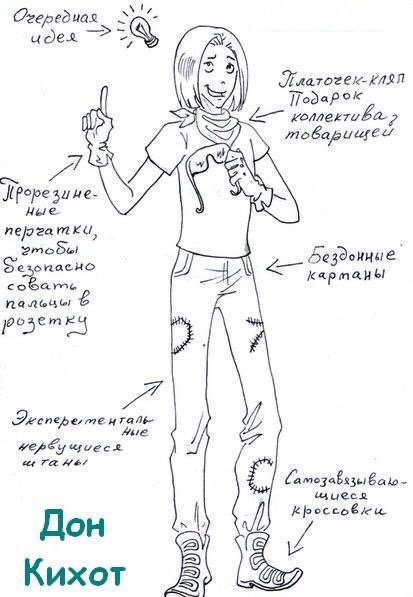 Очередная
идея
Платочек-кляп
Подарок
коллектива
товарищей
Прорезине-
ные
перчатки,
чтобы
безопасно
совать
пальцы в
розетку
Бездонные
карманы
Эксперементаль-
ные
нервущиеся
штаны
Самозавязываю-
щиеся
кроссовки
Дон
Кихот